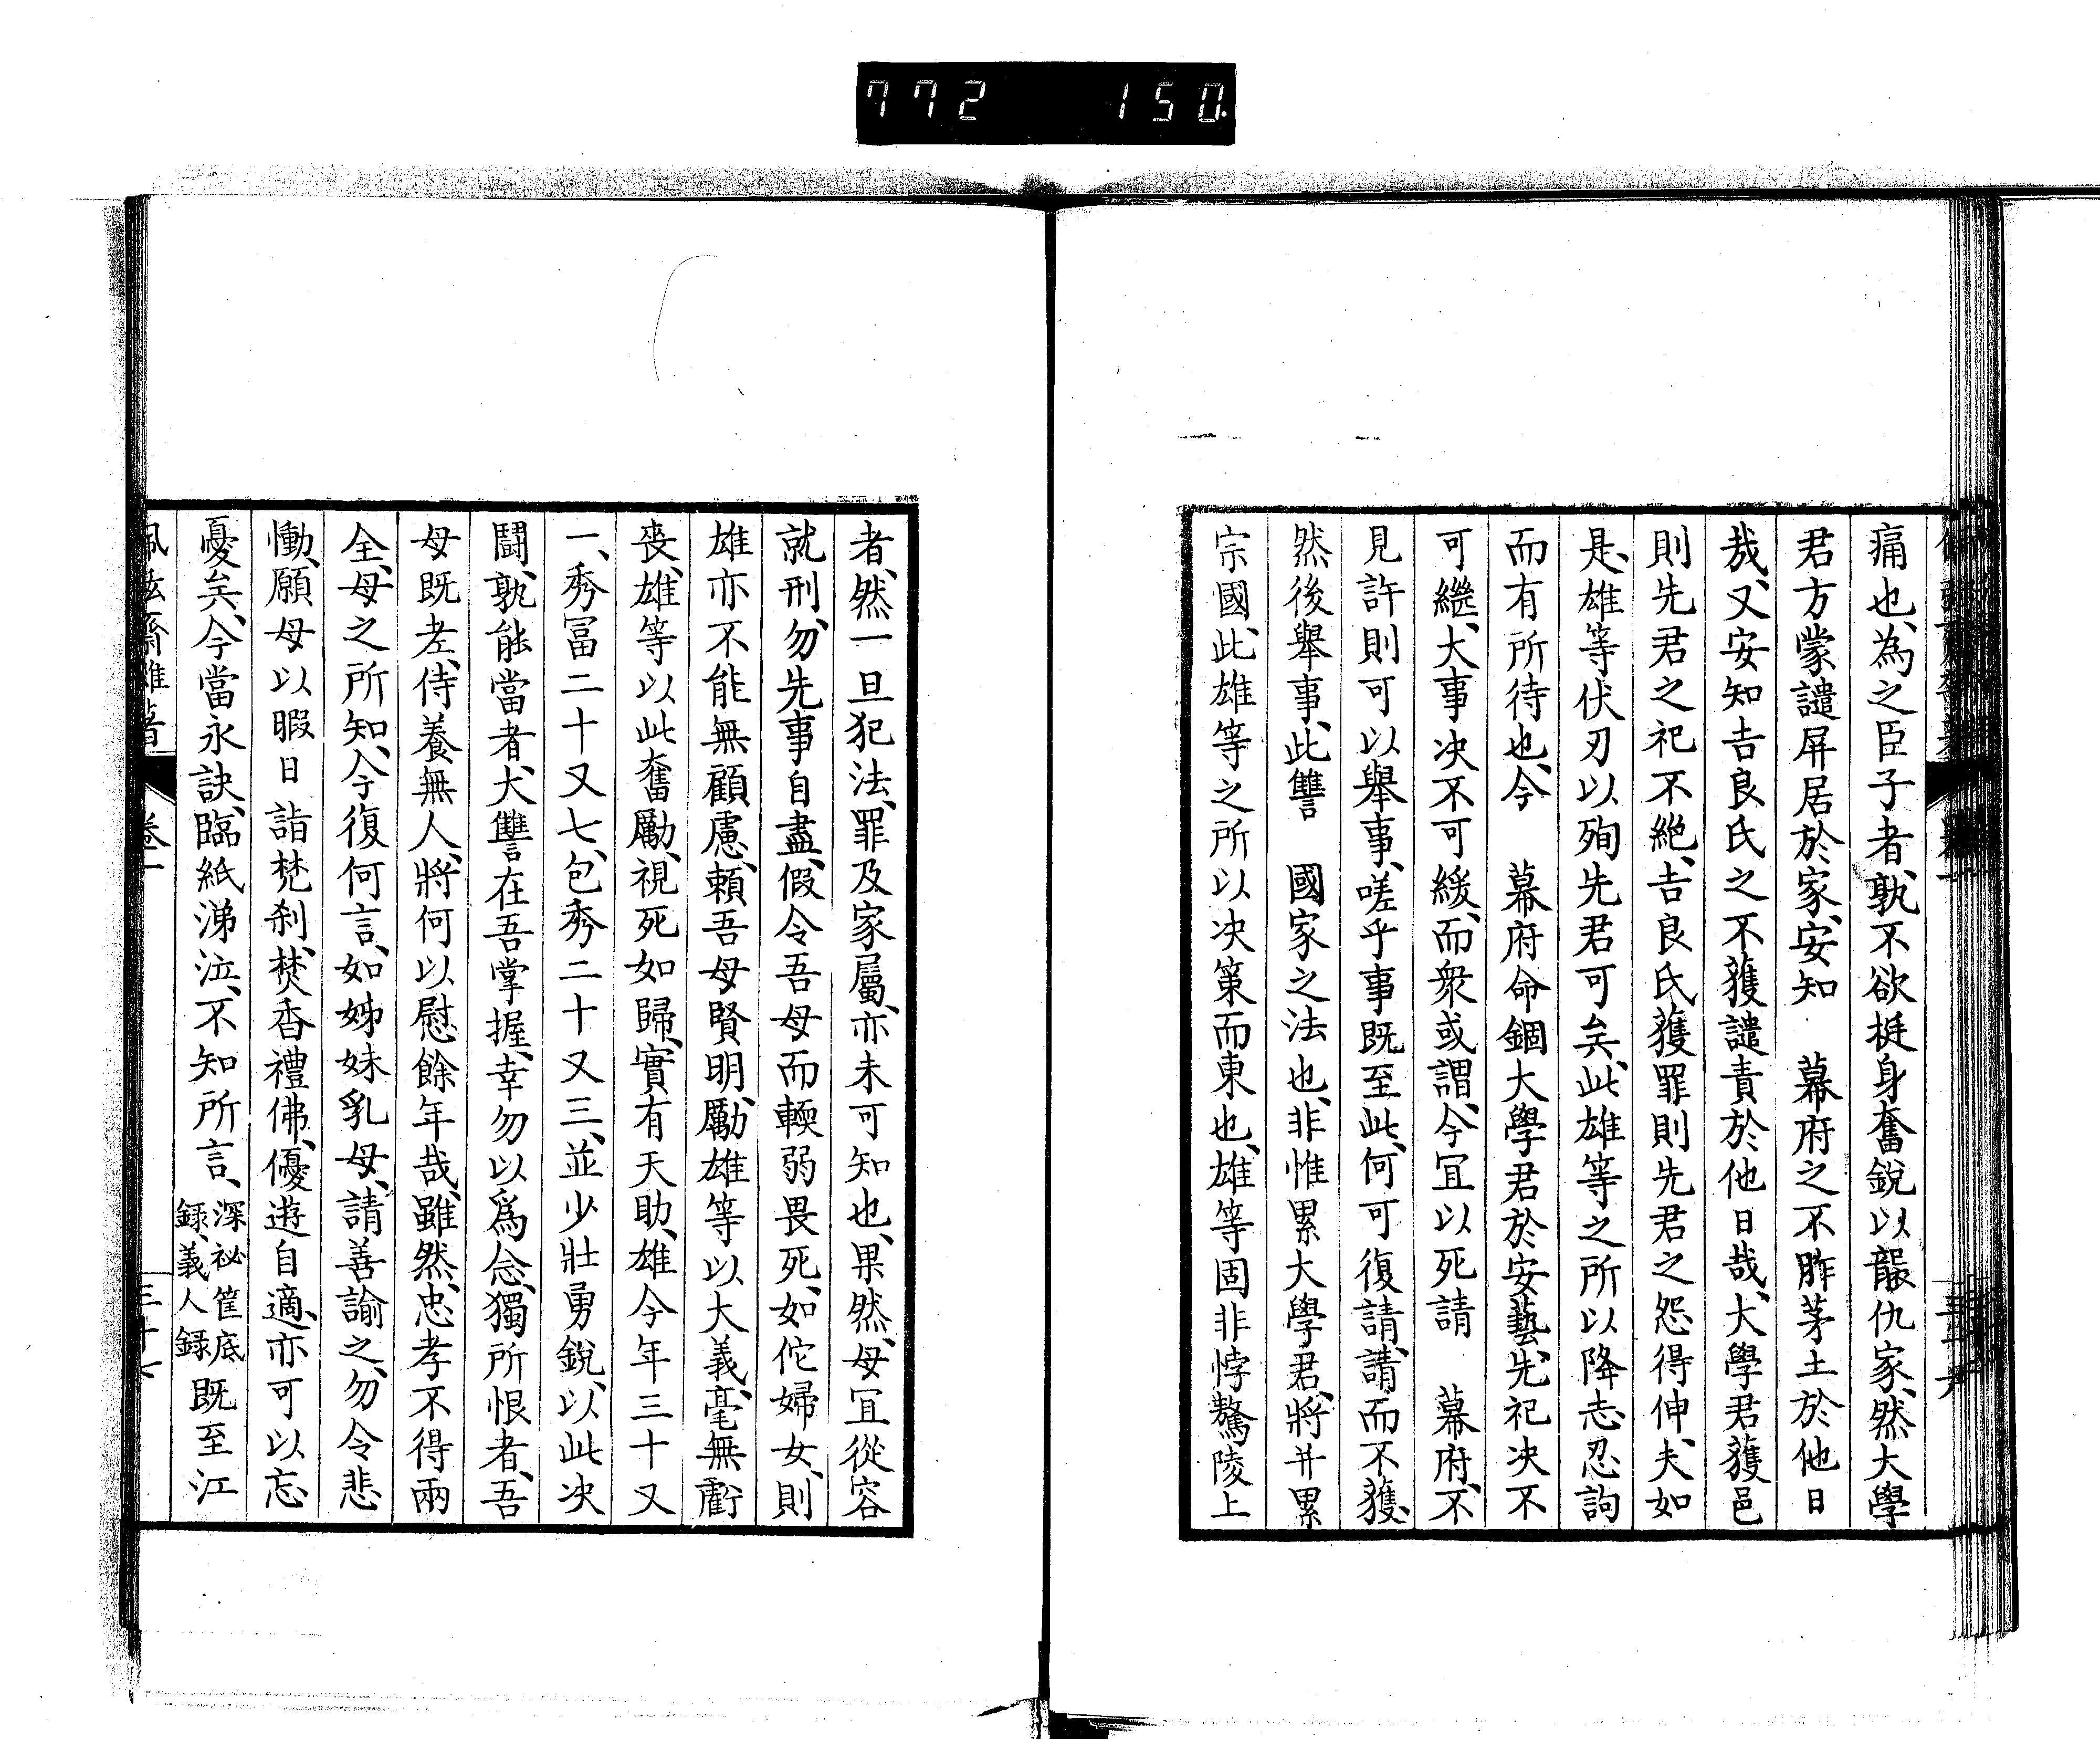 772 150
痛也、為之臣子者、孰不欲挺身奮銳以龑仇家、然大學
君方蒙譴屏居於家、安知　幕府之不胙茅土於他日
哉、又安知吉良氏之不獲譴責於他日哉、大學君獲邑
則先君之祀不絶、吉良氏獲罪則先君之怨得伸、夫如
是、雄等伏刃以殉先君可矣、此雄等之所以降志忍詢
而有所待也、今　幕府命錮大學君於安藝、先祀決不
可繼、大事决不可緩、而衆或謂、今冝以死請　幕府、不
見許則可以舉事、嗟乎事既至此、何可復請、請而不獲、
然後舉事、此讐　國家之法也、非惟累大學君、將并累
宗國、此雄等之所以决策而東也、雄等固非悖驁陵上
者、然一旦犯法、罪及家屬、亦未可知也、果然、母冝從容
就刑、勿先事自盡、假令吾母而輭弱畏死、如佗婦女、則
雄亦不能無顧慮、頼吾母賢明、勵雄等以大義、毫無虧
喪、雄等以此奮勵、視死如歸、實有天助、雄今年三十又
一、秀冨二十又七、包秀二十又三、並少壯勇銳、以此决
鬪、孰能當者、犬讐在吾掌握、幸勿以爲念、獨所恨者、吾
母既老、侍養無人、將何以慰餘年哉、雖然、忠孝不得兩
全、母之所知、今復何言、如姊妹乳母、請善諭之、勿令悲
慟、願母以暇日詣梵刹、焚香禮佛、優遊自適、亦可以忘
憂矣、今當永訣、臨紙涕泣、不知所言、深祕筐底
錄、義人録既至江
佩弦齋雜著　卷一　三十七